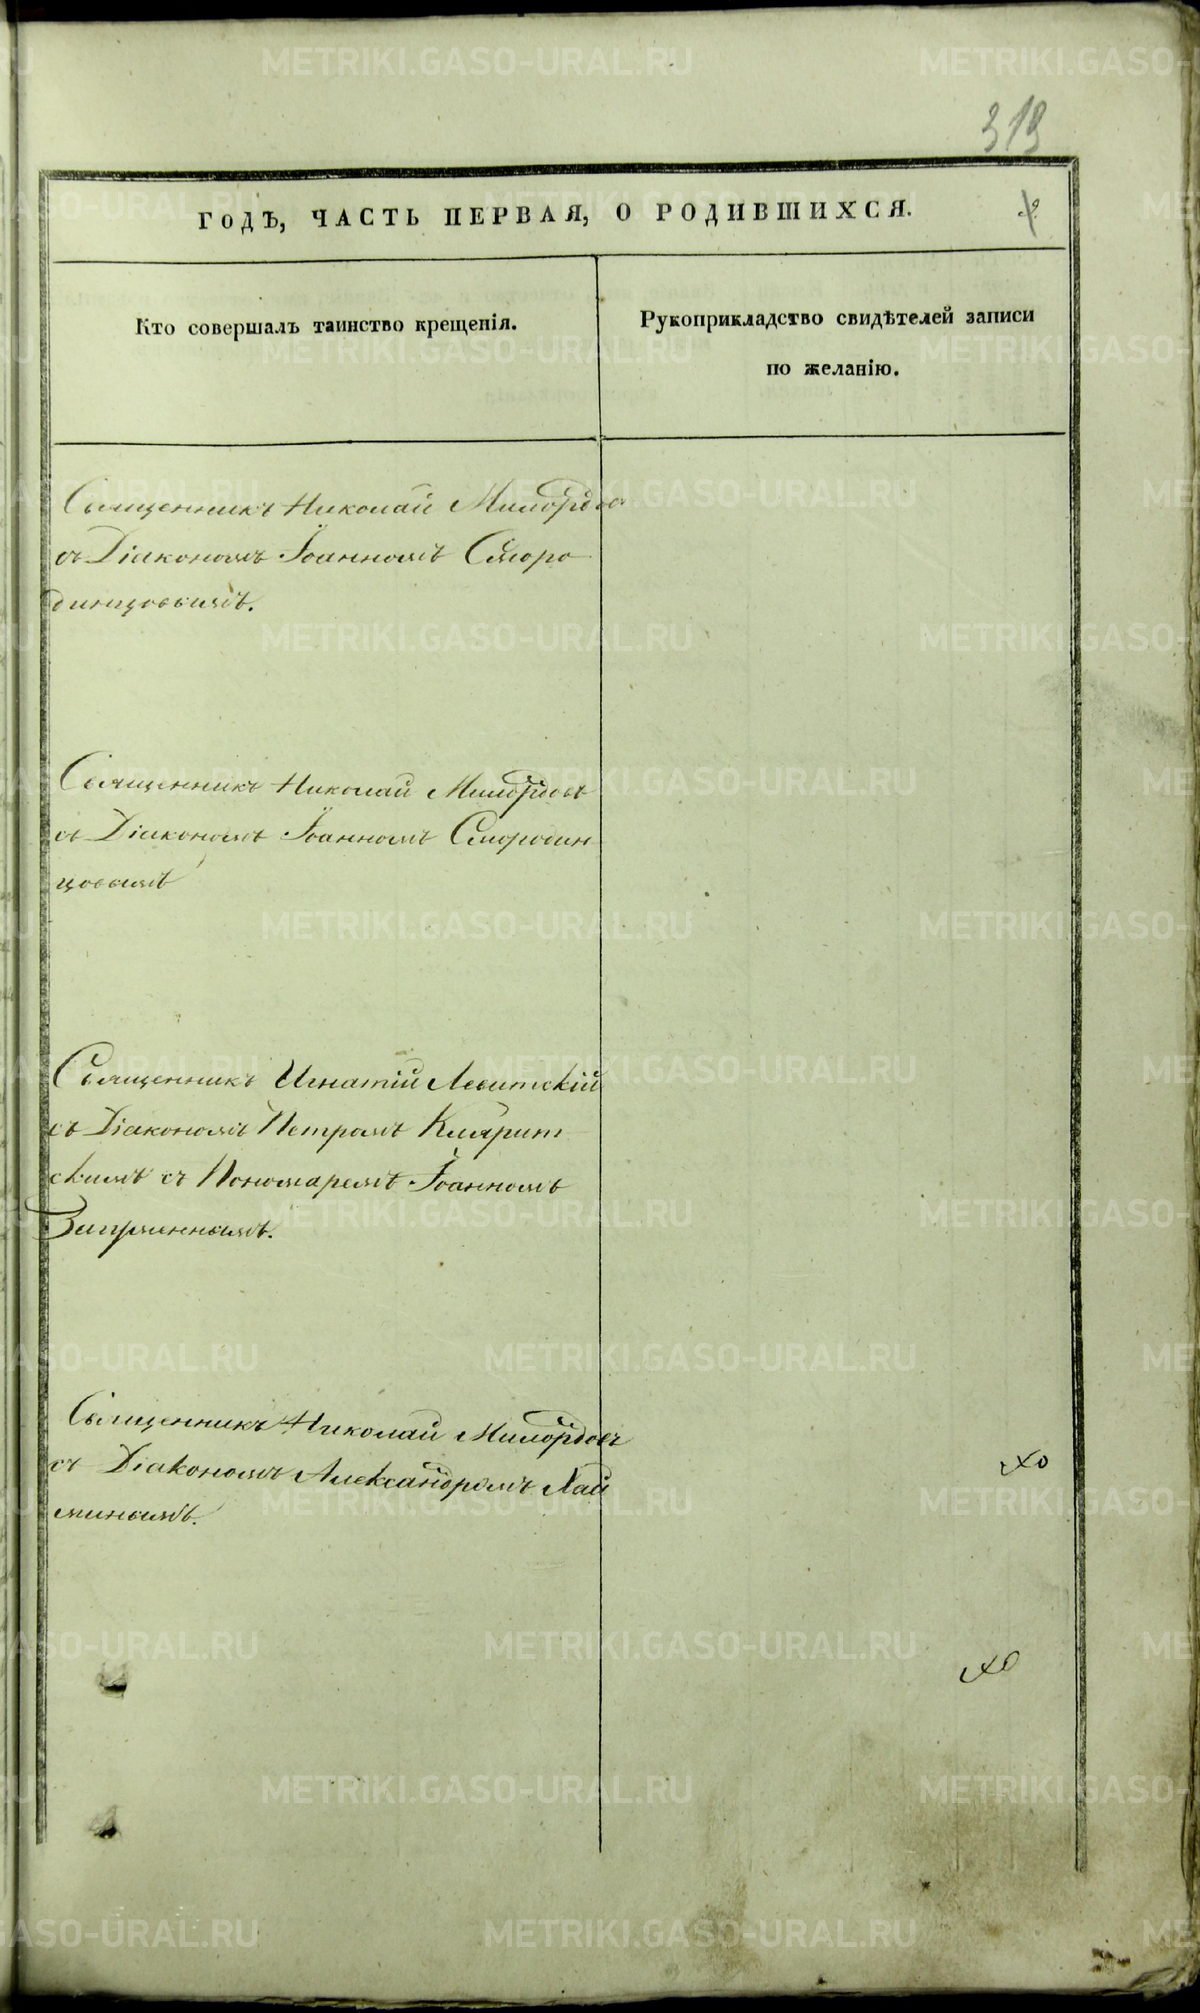 319
ГОДѢ, ЧАСТЬ ПЕРВАЯ, О РОДИВШИХСЯ.
Кто совершалъ таинство крещенія.
Рукоприкладство свидѣтелей записи
по желанію.
Священникъ Николай Милордовъ
съ Діакономъ Іоанномъ Сморо
динцовымъ.
Священникъ Николай Милордовъ
съ Діакономъ Іоанномъ Смородин
цовымъ
Священникъ Игнатій Левитскій
съ Діакономъ Петромъ Кларит
скимъ съ Пономаремъ Іоанномъ
Священникъ Николай Милордовъ
съ Діакономъ Александромъ Хай
минымъ.
METRIKI.GASO-URAL.RU